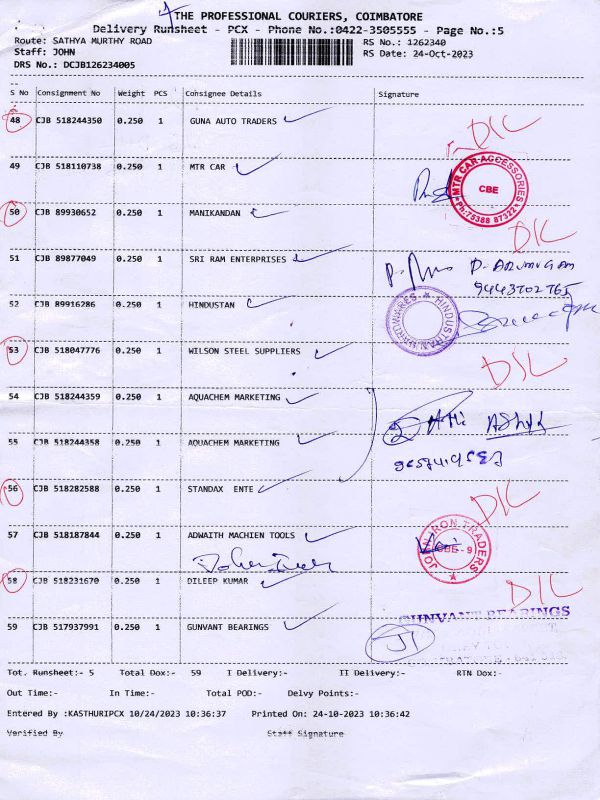 THE PROFESSIONAL COURIERS, COIMBATORE
Delivery Runsheet - PCX - Phone No.:0422-3505555 - Page No.:5
Route: SATHYA MURTHY ROAD RS No.: 1262340
Staff: JOHN RS Date: 24-Oct-2023
DRS No.: DCJB126234005
S No Consignment No Weight PCS Consignee Details Signature
48 CJB 518244350 0.250 1 GUNA AUTO TRADERS DIL
49 CJB 518110738 0.250 1 MTR CAR
MTR CAR ACCESSORIES
CBE
Ph:75388 87322
50 CJB 89930652 0.250 1 MANIKANDAN DIL
51 CJB 89877049 0.250 1 SRI RAM ENTERPRISES P. ARUMUGAM
9443702765
52 CJB 89916286 0.250 1 HINDUSTAN
HINDUSTAN HARDWARES
53 CJB 518047776 0.250 1 WILSON STEEL SUPPLIERS DIL
54 CJB 518244359 0.250 1 AQUACHEM MARKETING
55 CJB 518244358 0.250 1 AQUACHEM MARKETING
56 CJB 518282588 0.250 1 STANDAX ENTE DIL
57 CJB 518187844 0.250 1 ADWAITH MACHIEN TOOLS
IRON TRADERS
CBE - 9
58 CJB 518231670 0.250 1 DILEEP KUMAR DIL
GUNVANT BEARINGS
59 CJB 517937991 0.250 1 GUNVANT BEARINGS
Tot. Runsheet:- 5 Total Dox:- 59 I Delivery:- II Delivery:- RTN Dox:-
Out Time:- In Time:- Total POD:- Delvy Points:-
Entered By :KASTHURIPCX 10/24/2023 10:36:37 Printed On: 24-10-2023 10:36:42
Verified By Staff Signature